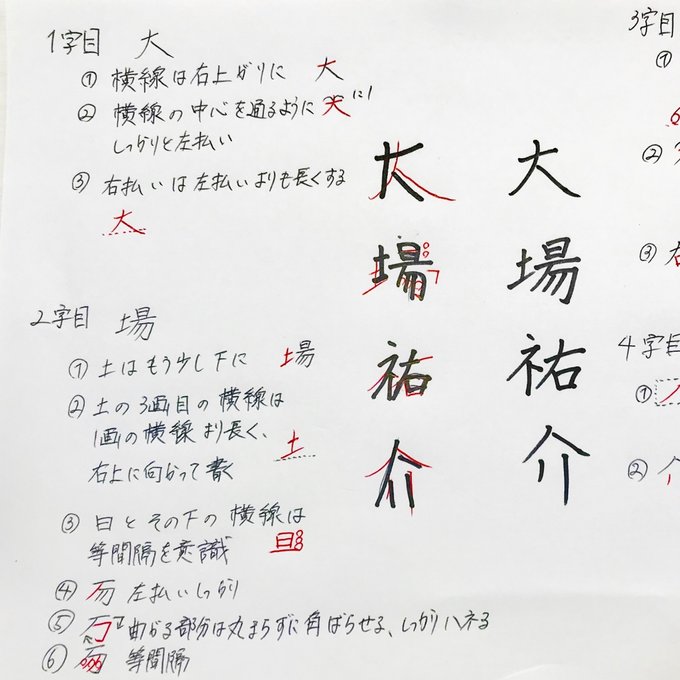 1字目 大
① 横線は右上がりに 大
② 横線の中心を通るように 大に!
しっかりと左払い
③ 右払いは左払いよりも長くする
大
2字目 場
① 土はもう少し下に 場
② 土の3画目の横線は
1画の横線より長く、
右上に向かって書く 土
③ 日とその下の横線は
等間隔を意識 旦
④ 左払いしっかり
⑤ 曲がる部分は丸まらずに角ばらせる、しっかりハネる
⑥ 等間隔
大
場
祐
介
大
場
祐
介
3字目
①
②
③ 右
4字目
①
② 介